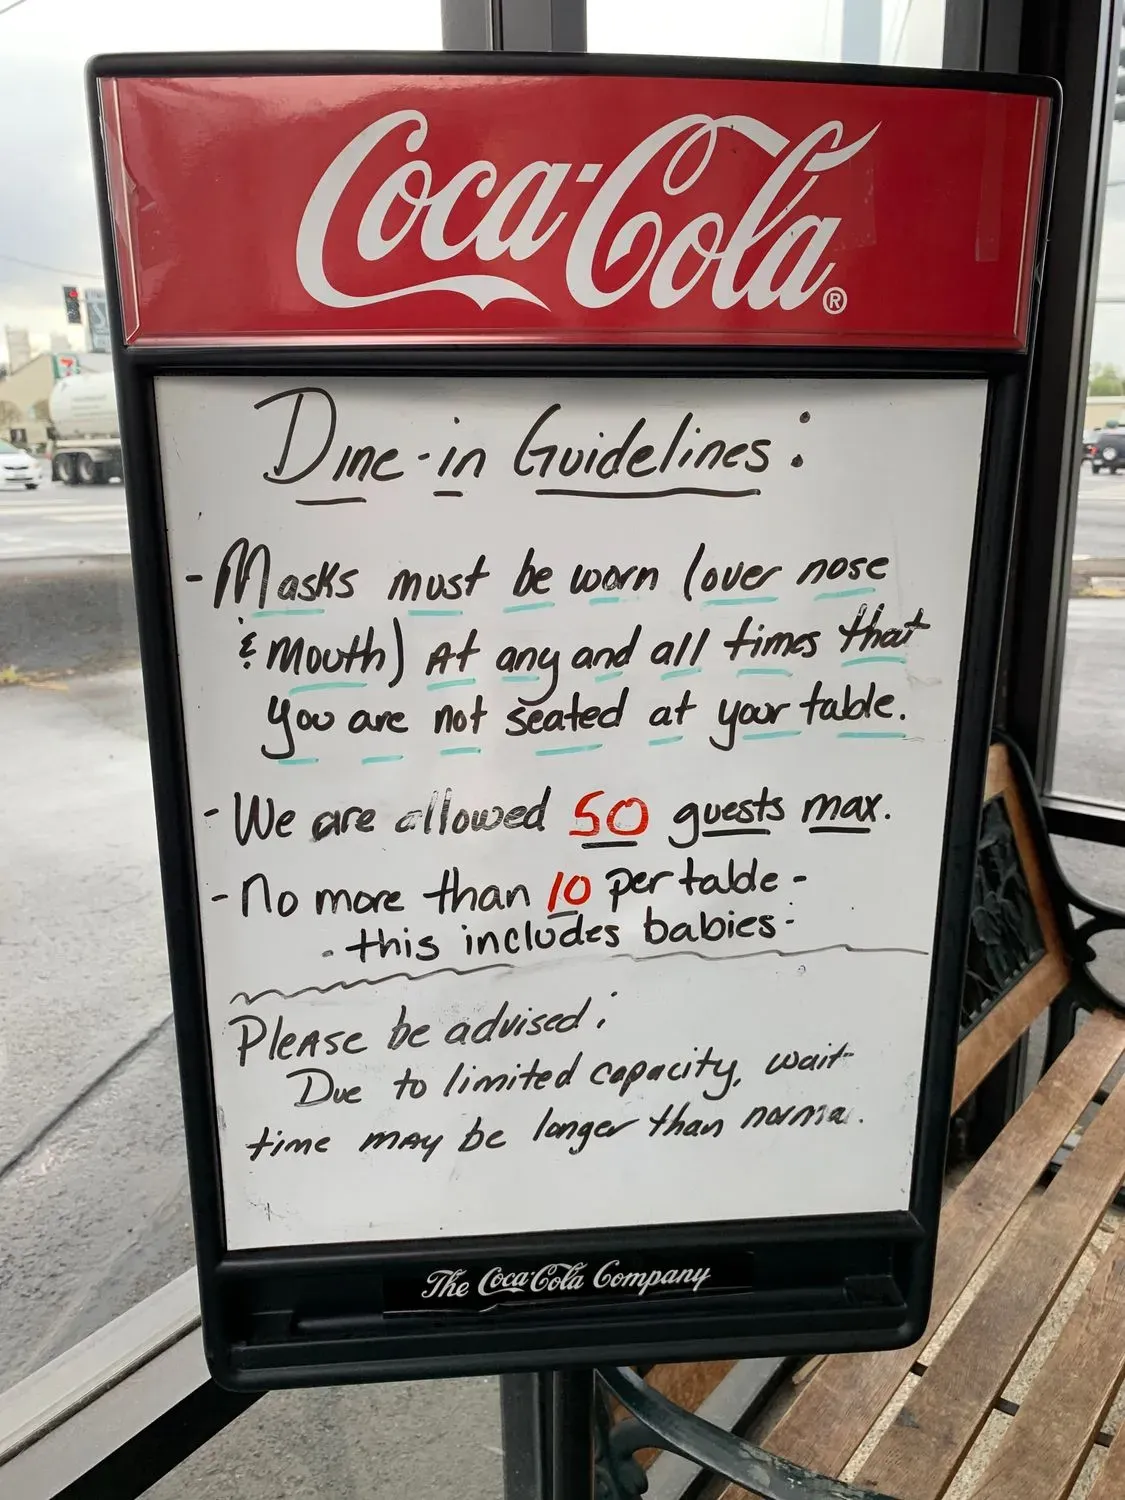 Coca-Cola®
Dine-in Guidelines:
- Masks must be worn (over nose
& mouth) At any and all times that
you are not seated at your table.
- We are allowed 50 guests max.
- No more than 10 per table -
- this includes babies -
Please be advised:
Due to limited capacity, wait-
time may be longer than normal.
The Coca-Cola Company